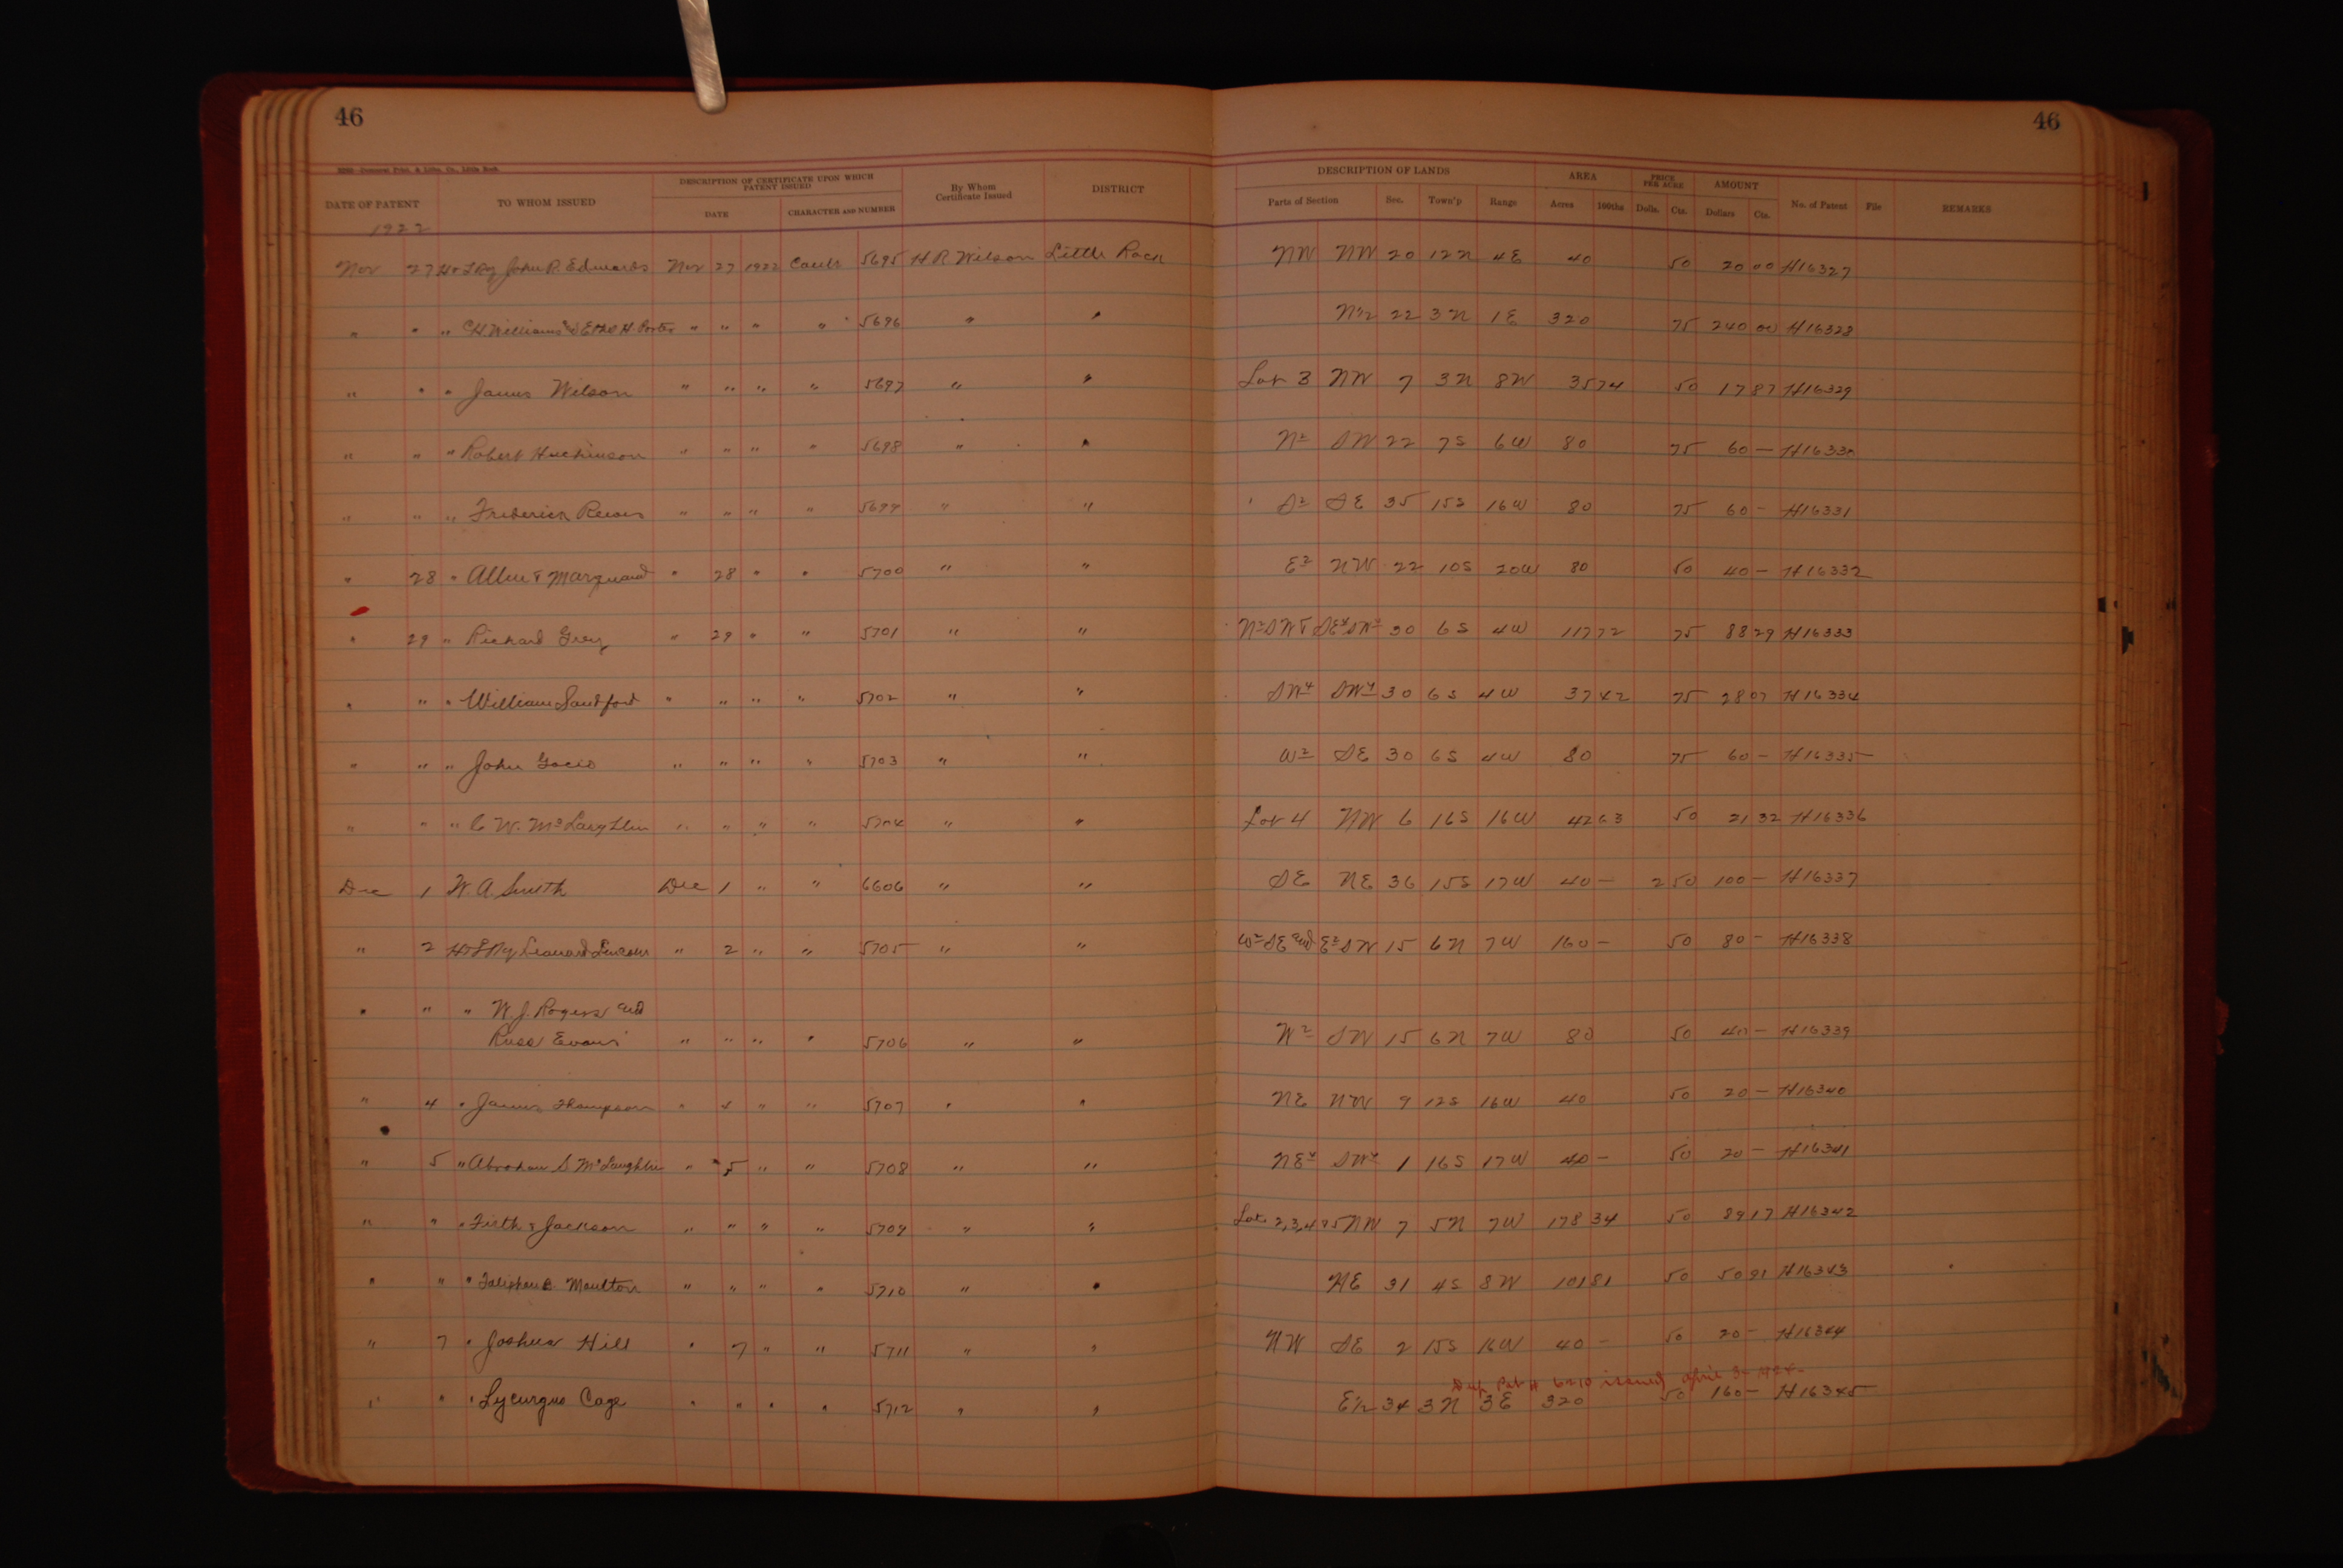 46
46
DESCRIPTION OF CERTIFICATE UPON WHICH PATENT ISSUED
DESCRIPTION OF LANDS AREA PRICE PER ACRE AMOUNT
DATE OF PATENT TO WHOM ISSUED DATE CHARACTER AND NUMBER By Whom Certificate Issued DISTRICT Parts of Section Sec. Town'p Range Acres 100ths Dolls. Cts. Dollars Cts. No. of Patent File REMARKS
1922
Nov 27 John P. Edwards Nov 27 1922 5695 H R Wilson Little Rock NW NW 20 12N 4E 40 50 20 00 H16327
" " " CH Williams & Ethel H. Porter " " " " 5696 " " N1/2 22 3N 1E 320 75 240 00 H16328
" " " James Wilson " " " " 5697 " " Lot 3 NW 7 3N 8W 35 74 50 17 87 H16329
" " " Robert Hutchinson " " " " 5698 " " N2 SW 22 7S 6W 80 75 60 — H16330
" " " Frederick " " " " 5699 " " S2 SE 35 15S 16W 80 75 60 - H16331
" 28 " Allen & Marquand " 28 " " 5700 " " E2 NW 22 10S 20W 80 50 40 — H16332
" 29 " Richard Grey " 29 " " 5701 " " N2 SW & SE4 SW4 30 6S 4W 117 72 75 88 29 H16333
" " " William Sandford " " " " 5702 " " SW4 SW4 30 6S 4W 37 42 75 28 07 H16334
" " " John Gocio " " " " 5703 " " W2 SE 30 6S 4W 80 75 60 — H16335
" " " C W. McLaughlin " " " " 5704 " " Lot 4 NW 6 16S 16W 42 63 50 21 32 H16336
Dec 1 W. A. Smith Dec 1 " " 6606 " " SE NE 36 15S 17W 40 — 2 50 100 — H16337
" 2 Leonard " 2 " " 5705 " " W2 SE and E2 SW 15 6N 7W 160 — 50 80 — H16338
" " " W. J. Rogers and
Russ Evans " " " " 5706 " " W2 SW 15 6N 7W 80 50 40 — H16339
" 4 " James Thompson " 4 " " 5707 " " NE NW 9 12S 16W 40 50 20 — H16340
" 5 " Abraham S McLaughlin " 5 " " 5708 " " NE4 SW4 1 16S 17W 40 — 50 20 — H16341
" " " Firth & Jackson " " " " 5709 " " Lots 2,3,4 & 5 NW 7 5N 7W 178 34 50 89 17 H16342
" " " Moulton " " " " 5710 " " NE 31 4S 8W 101 81 50 50 91 H16343
" 7 " Joshua Hill " 7 " " 5711 " " NW SE 2 15S 16W 40 — 50 20 — H16344
Dup Pat issued April
" " " Lycurgus Cage " " " " 5712 " " E1/2 34 3N 3E 320 50 160 — H16345